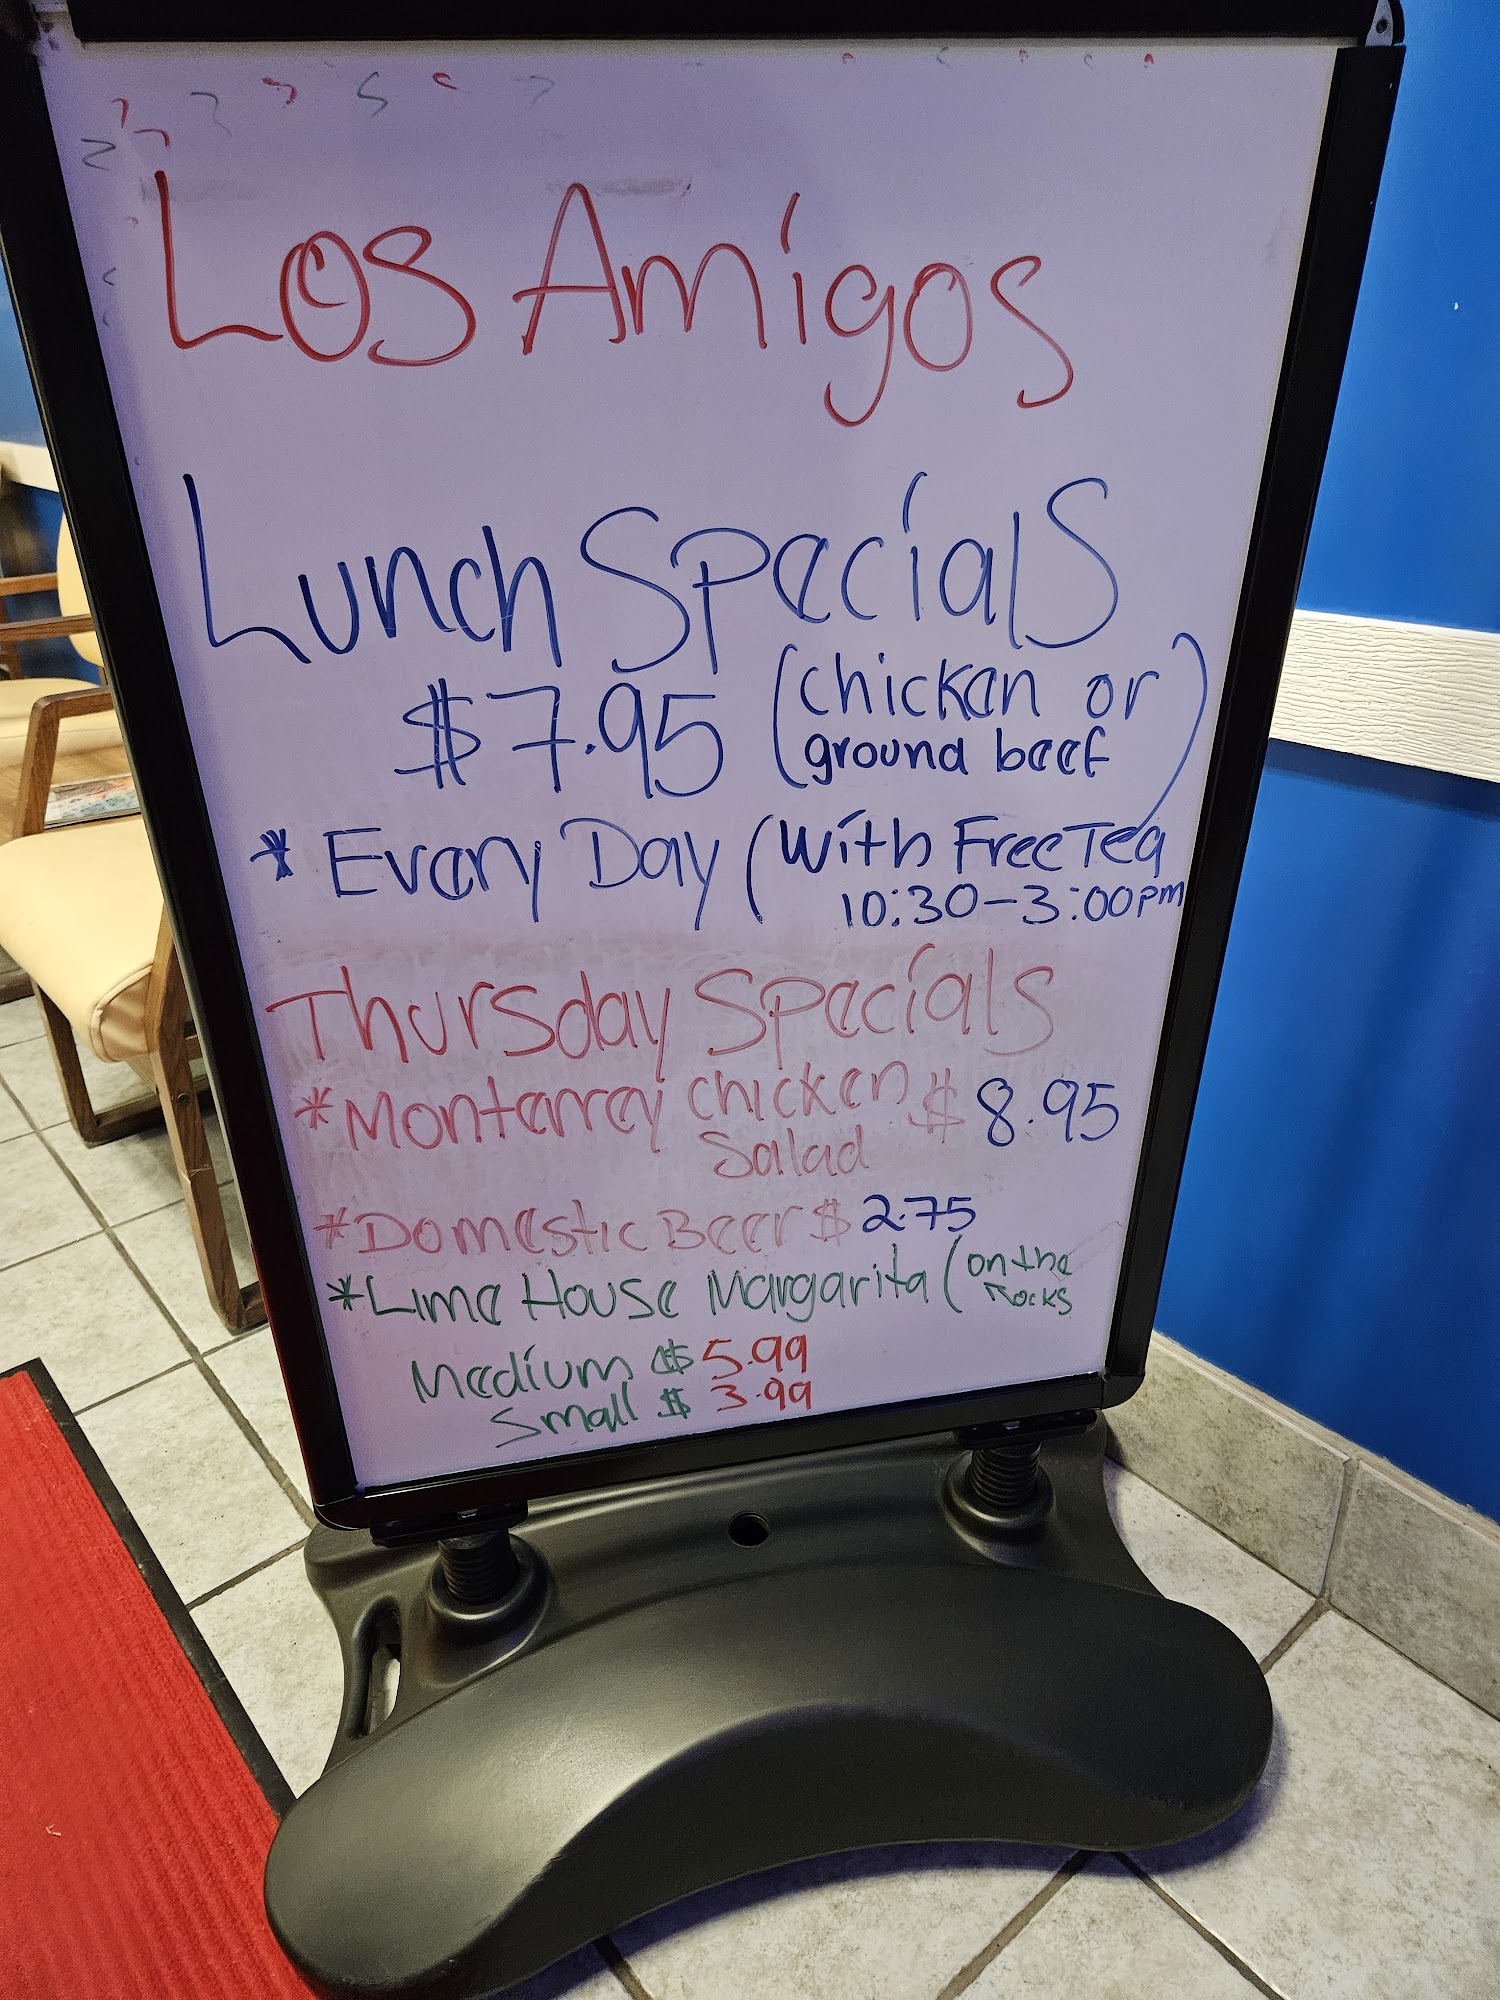 Los Amigos
Lunch Specials
$7.95 (chicken or
ground beef)
* Every Day (With Free Tea
10:30-3:00pm
Thursday Specials
*Monterrey chicken $8.95
Salad
*Domestic Beer $2.75
*Lime House Margarita (on the
Rocks
Medium $5.99
Small $3.99